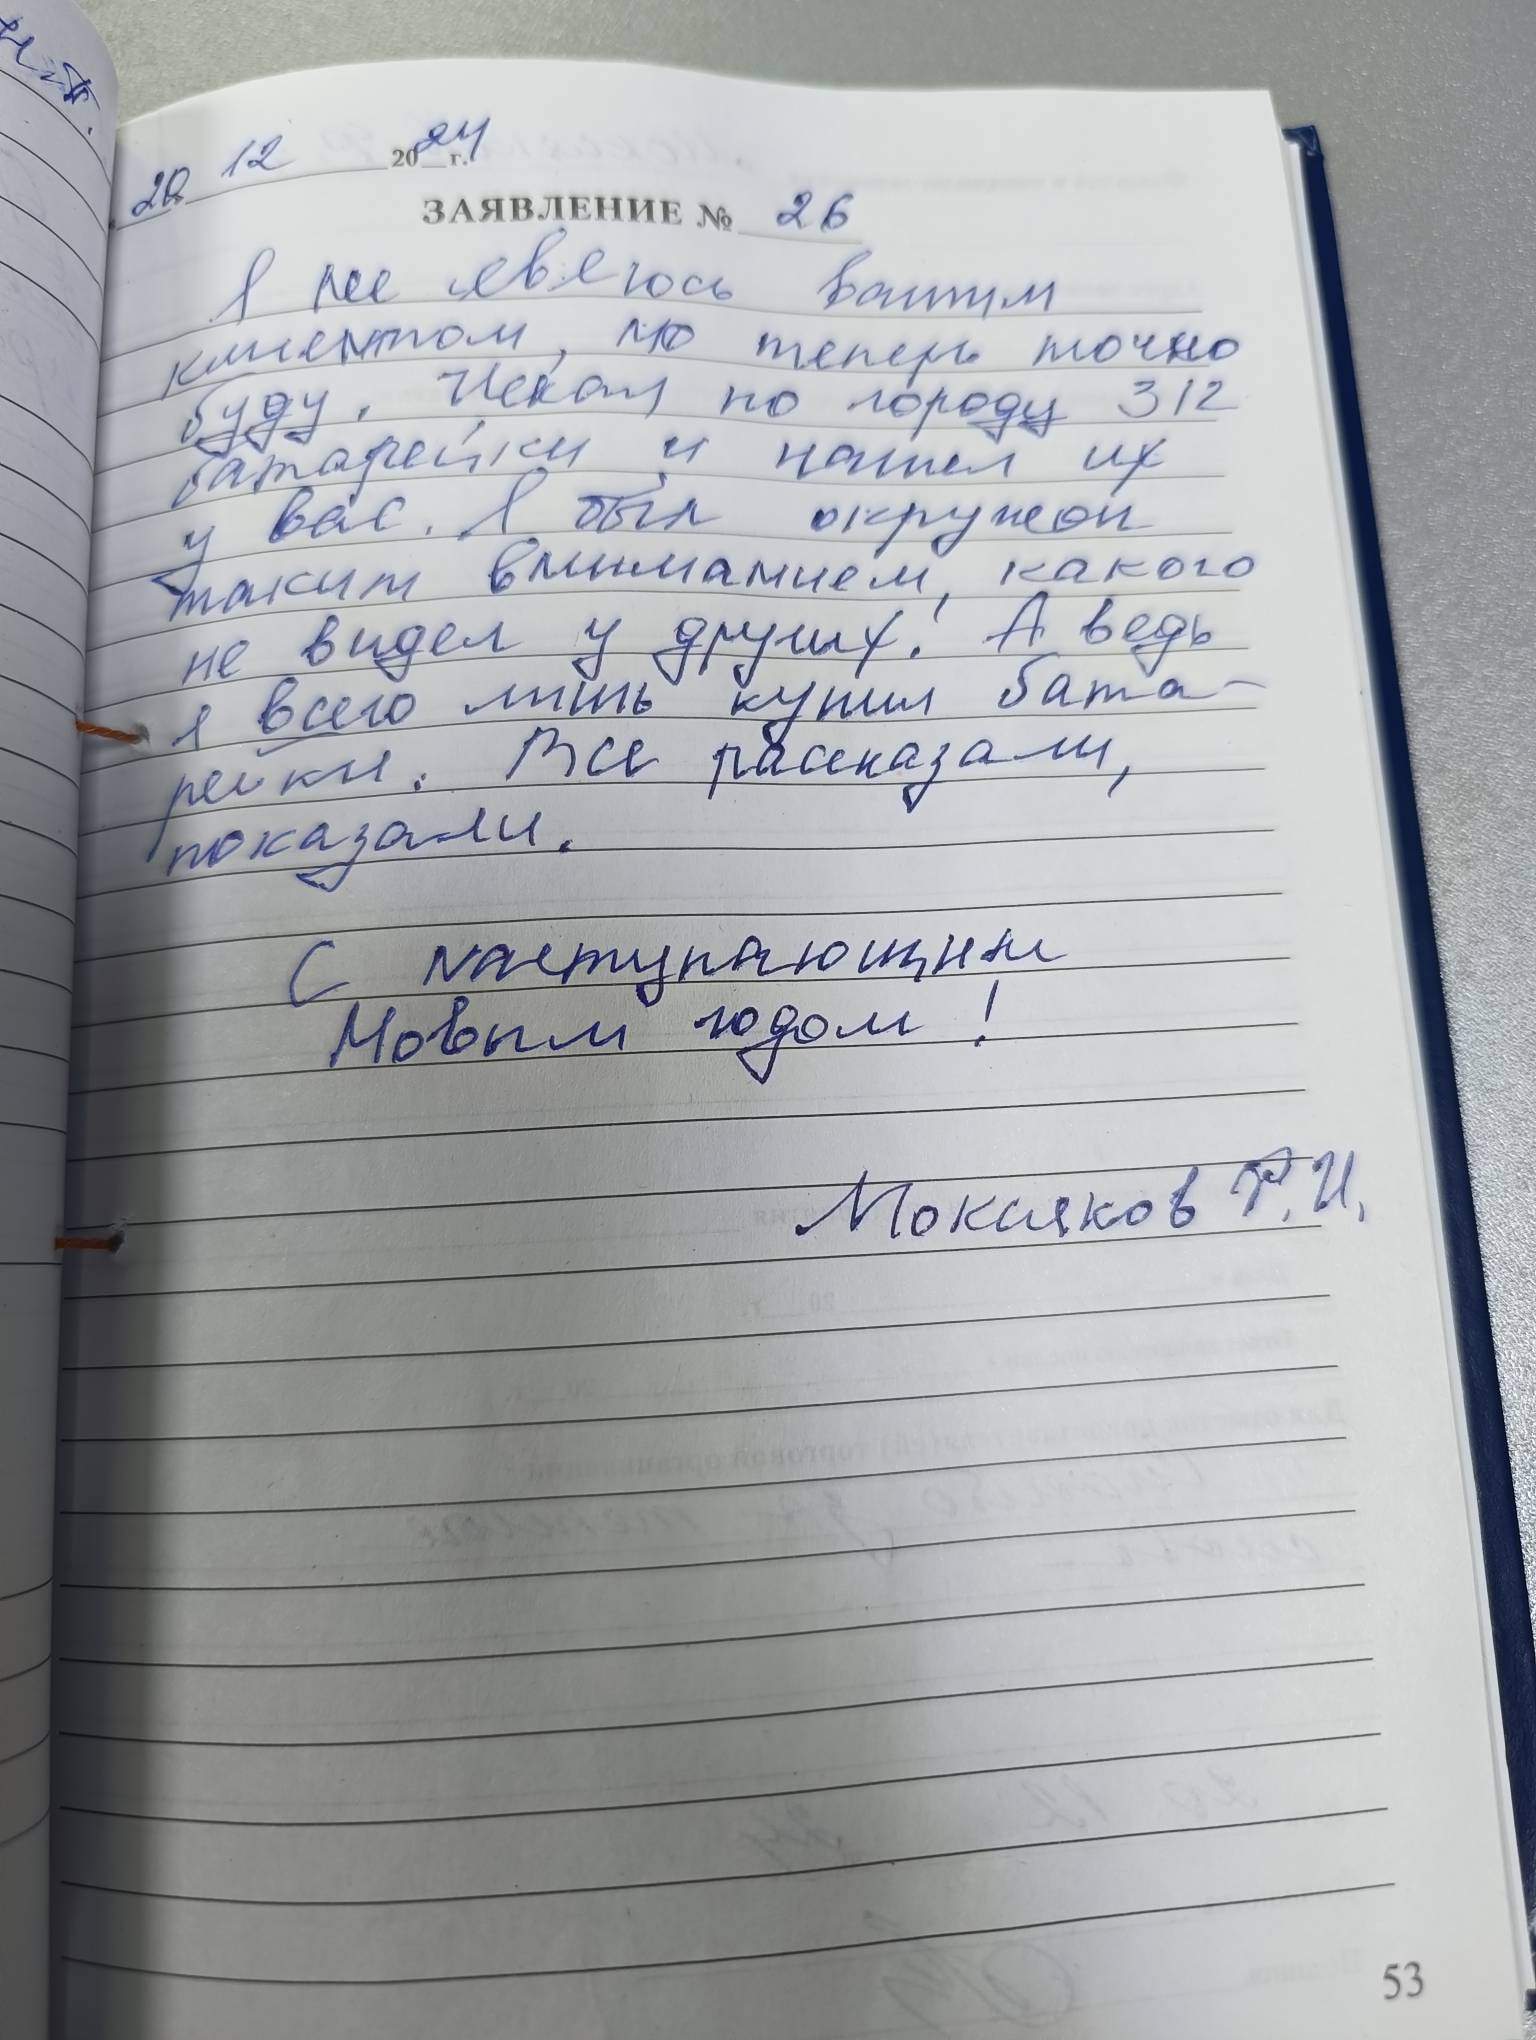 20 12 2024 г.
ЗАЯВЛЕНИЕ № 26
Я не являюсь вашим
клиентом, но теперь точно
буду. Искал по городу 312
батарейки и нашел их
у вас. Я был окружен
таким вниманием, какого
не видел у других! А ведь
я всего лишь купил бата-
рейки. Все рассказали,
показали.
С наступающим
Новым годом!
Мокшаков Р.И.
53